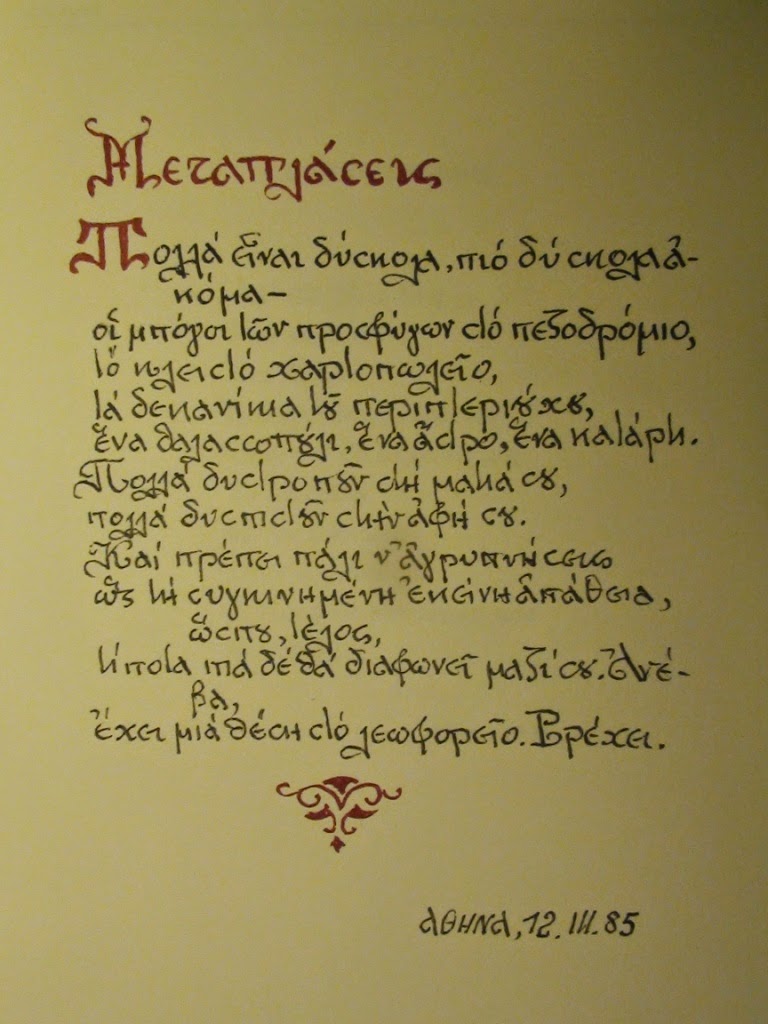 Μεταπλάσεις
Πολλά εἶναι δύσκολα, πιό δύσκολα ἀ-
κόμα—
οἱ μπόγοι τῶν προσφύγων στό πεζοδρόμιο,
τό κλειστό χαρτοπωλεῖο,
τά δεκανίκια τοῦ περιπτεριούχου,
ἕνα θαλασσοπούλι, ἕνα ἄστρο, ἕνα κατάρτι.
Πολλά δυστροποῦν στή ματιά σου,
πολλά δυσπιστοῦν στήν ἀφή σου.
Καί πρέπει πάλι ν' ἀγρυπνήσεις
ὥς τή συγκινημένη ἐκείνη ἀπάθεια,
ὥσπου, τέλος,
τίποτα πιά δέ θά διαφωνεῖ μαζί σου. Ἀνέ-
βα,
ἔχει μιά θέση στό λεωφορεῖο. Βρέχει.
ΑΘΗΝΑ, 12.III.85